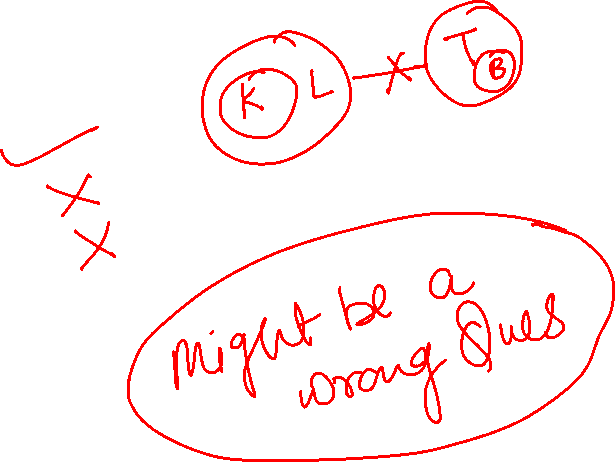 K L T B
Might be a
wrong Ques